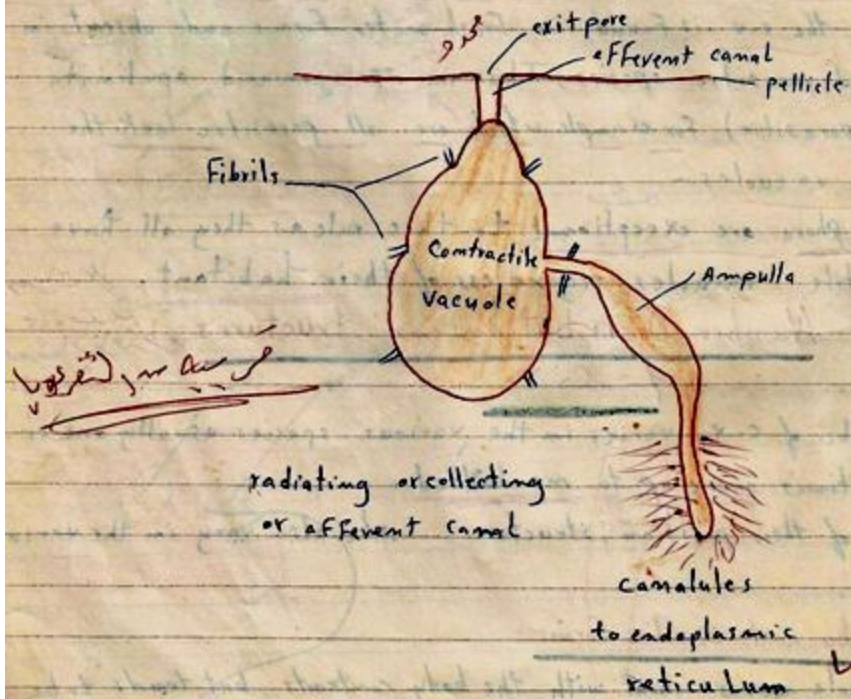 exit pore
efferent canal
pellicle
Fibrils
Contractile
Vacuole
Ampulla
radiating or collecting
or afferent canal
canalules
to endoplasmic
reticulum